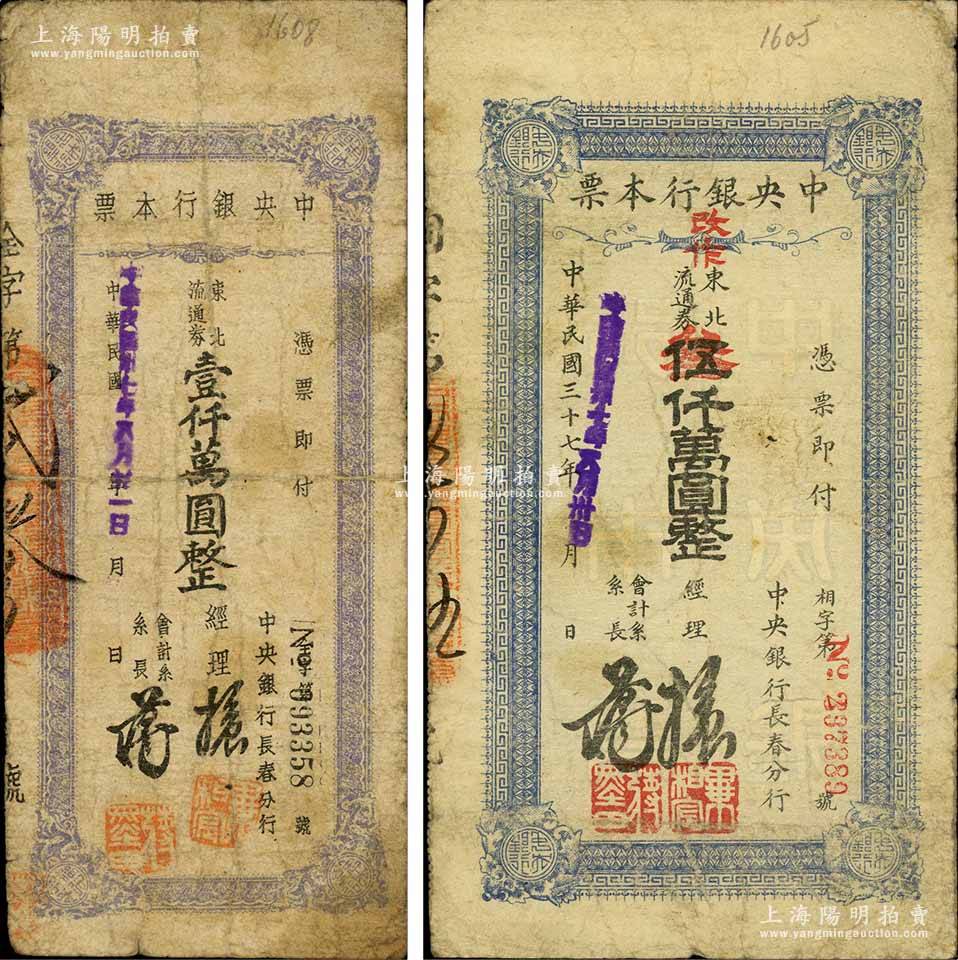 上海陽明拍賣
www.yangmingauction.com
1608
票本行銀央中
憑票即付
東北
流通券
壹仟萬圓整
中華民國
年
月
日
經理
會計系
系長
中央銀行長春分行
字第
No 093358
號
字第
號
1605
票本行銀央中
改作
憑票即付
東北
流通券
伍仟萬圓整
中華民國三十七年
月
日
經理
會計系
系長
中央銀行長春分行
相字第
No. 237389
號
上海陽明拍賣
www.yangmingauction.com
上海陽明拍賣
www.yangmingauction.com